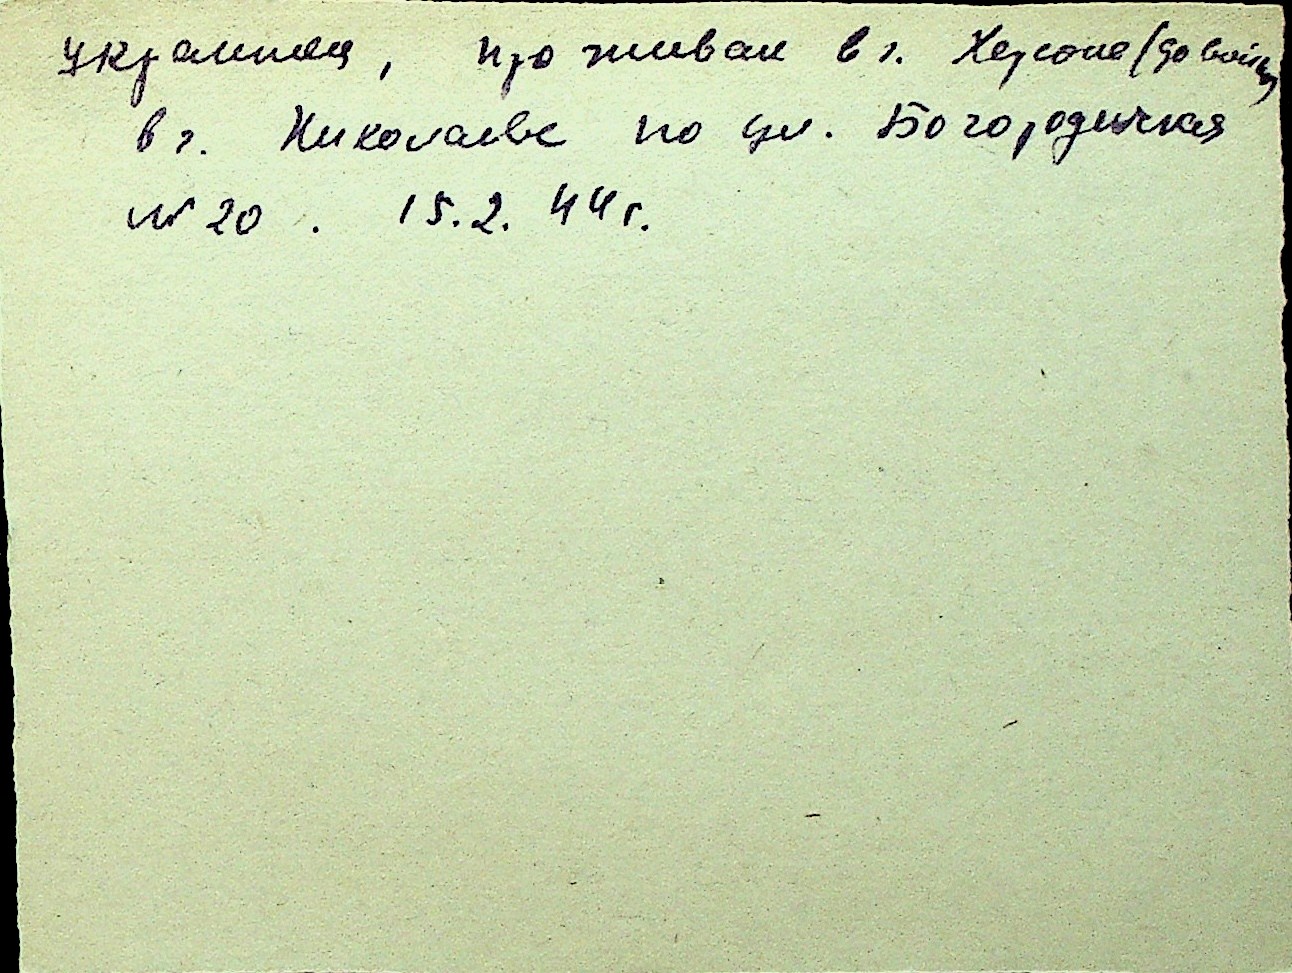 украинец, проживал в г. Херсоне (до войны)
в г. Николаеве по ул. Богородичная
№ 20 . 15.2.44 г.